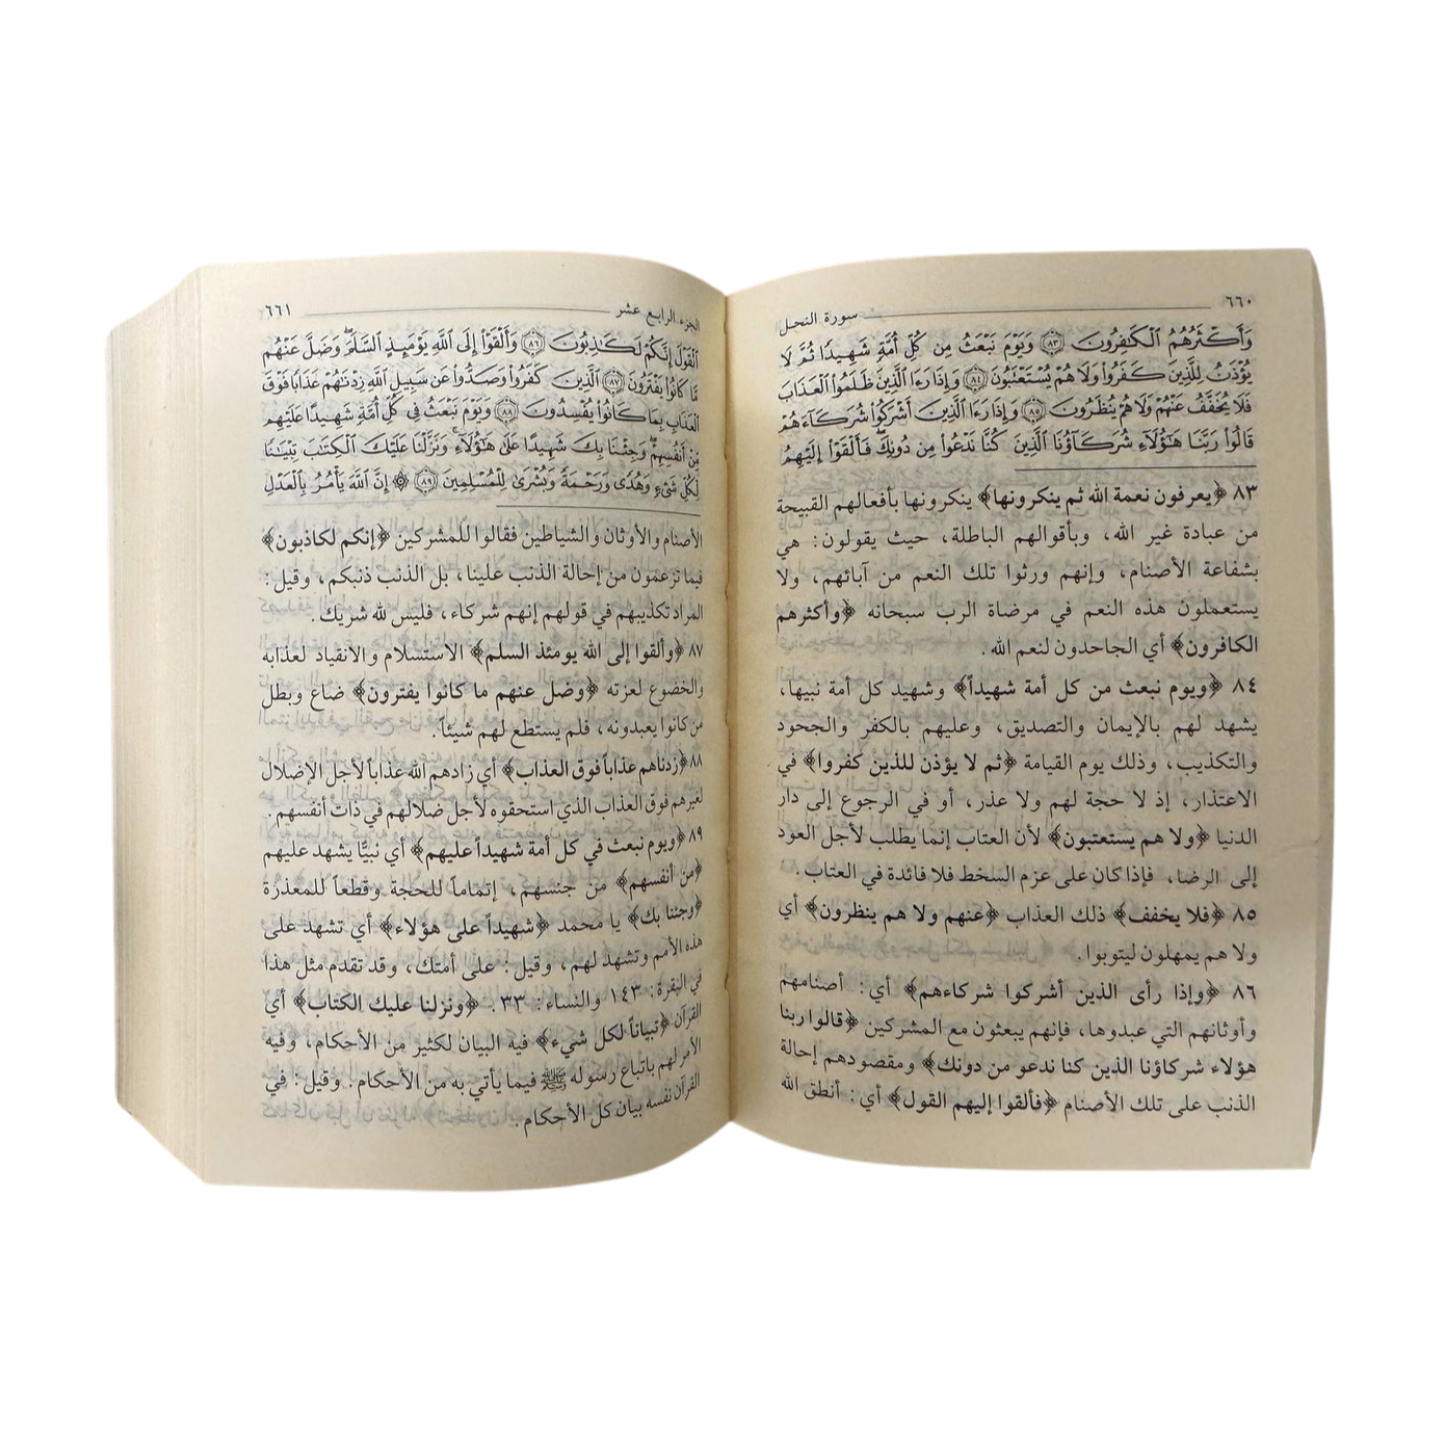 ٦٦٠
سورة النحل
وَأَكْثَرُهُمُ ٱلْكَٰفِرُونَ ٨٣ وَيَوْمَ نَبْعَثُ مِن كُلِّ أُمَّةٍ شَهِيدًا ثُمَّ لَا
يُؤْذَنُ لِلَّذِينَ كَفَرُوا۟ وَلَا هُمْ يُسْتَعْتَبُونَ ٨٤ وَإِذَا رَءَا ٱلَّذِينَ ظَلَمُوا۟ ٱلْعَذَابَ
فَلَا يُخَفَّفُ عَنْهُمْ وَلَا هُمْ يُنظَرُونَ ٨٥ وَإِذَا رَءَا ٱلَّذِينَ أَشْرَكُوا۟ شُرَكَآءَهُمْ
قَالُوا۟ رَبَّنَا هَٰٓؤُلَآءِ شُرَكَآؤُنَا ٱلَّذِينَ كُنَّا نَدْعُوا۟ مِن دُونِكَ ۖ فَأَلْقَوْا۟ إِلَيْهِمُ
٨٣ ﴿يعرفون نعمة الله ثم ينكرونها﴾ ينكرونها بأفعالهم القبيحة
من عبادة غير الله، وبأقوالهم الباطلة، حيث يقولون: هي
بشفاعة الأصنام، وإنهم ورثوا تلك النعم من آبائهم، ولا
يستعملون هذه النعم في مرضاة الرب سبحانه ﴿وأكثرهم
الكافرون﴾ أي الجاحدون لنعم الله.
٨٤ ﴿ويوم نبعث من كل أمة شهيداً﴾ وشهيد كل أمة نبيها،
يشهد لهم بالإيمان والتصديق، وعليهم بالكفر والجحود
والتكذيب، وذلك يوم القيامة ﴿ثم لا يؤذن للذين كفروا﴾ في
الاعتذار، إذ لا حجة لهم ولا عذر، أو في الرجوع إلى دار
الدنيا ﴿ولا هم يستعتبون﴾ لأن العتاب إنما يطلب لأجل العود
إلى الرضا، فإذا كان على عزم السخط فلا فائدة في العتاب.
٨٥ ﴿فلا يخفف﴾ ذلك العذاب ﴿عنهم ولا هم ينظرون﴾ أي
ولا هم يمهلون ليتوبوا.
٨٦ ﴿وإذا رأى الذين أشركوا شركاءهم﴾ أي: أصنامهم
وأوثانهم التي عبدوها، فإنهم يبعثون مع المشركين ﴿قالوا ربنا
هؤلاء شركاؤنا الذين كنا ندعو من دونك﴾ ومقصودهم إحالة
الذنب على تلك الأصنام ﴿فألقوا إليهم القول﴾ أي: أنطق الله
الجزء الرابع عشر
٦٦١
ٱلْقَوْلَ إِنَّكُمْ لَكَٰذِبُونَ ٨٦ وَأَلْقَوْا۟ إِلَى ٱللَّهِ يَوْمَئِذٍ ٱلسَّلَمَ ۖ وَضَلَّ عَنْهُم
مَّا كَانُوا۟ يَفْتَرُونَ ٨٧ ٱلَّذِينَ كَفَرُوا۟ وَصَدُّوا۟ عَن سَبِيلِ ٱللَّهِ زِدْنَٰهُمْ عَذَابًا فَوْقَ
ٱلْعَذَابِ بِمَا كَانُوا۟ يُفْسِدُونَ ٨٨ وَيَوْمَ نَبْعَثُ فِى كُلِّ أُمَّةٍ شَهِيدًا عَلَيْهِم
مِّنْ أَنفُسِهِمْ ۖ وَجِئْنَا بِكَ شَهِيدًا عَلَىٰ هَٰٓؤُلَآءِ ۚ وَنَزَّلْنَا عَلَيْكَ ٱلْكِتَٰبَ تِبْيَٰنًا
لِّكُلِّ شَىْءٍ وَهُدًى وَرَحْمَةً وَبُشْرَىٰ لِلْمُسْلِمِينَ ٨٩ ۞ إِنَّ ٱللَّهَ يَأْمُرُ بِٱلْعَدْلِ
الأصنام والأوثان والشياطين فقالوا للمشركين ﴿إنكم لكاذبون﴾
فيما تزعمون من إحالة الذنب علينا، بل الذنب ذنبكم، وقيل:
المراد تكذيبهم في قولهم إنهم شركاء، فليس لله شريك.
٨٧ ﴿وألقوا إلى الله يومئذ السلم﴾ الاستسلام والانقياد لعذابه
والخضوع لعزته ﴿وضل عنهم ما كانوا يفترون﴾ ضاع وبطل
من كانوا يعبدونه، فلم يستطع لهم شيئاً.
٨٨ ﴿زدناهم عذاباً فوق العذاب﴾ أي زادهم الله عذاباً لأجل الإضلال
لغيرهم فوق العذاب الذي استحقوه لأجل ضلالهم في ذات أنفسهم.
٨٩ ﴿ويوم نبعث في كل أمة شهيداً عليهم﴾ أي نبيًّا يشهد عليهم
﴿من أنفسهم﴾ من جنسهم، إتماماً للحجة وقطعاً للمعذرة
﴿وجئنا بك﴾ يا محمد ﴿شهيداً على هؤلاء﴾ أي تشهد على
هذه الأمم وتشهد لهم، وقيل: على أمتك، وقد تقدم مثل هذا
في البقرة: ١٤٣ والنساء: ٣٣. ﴿ونزلنا عليك الكتاب﴾ أي
القرآن ﴿تبياناً لكل شيء﴾ فيه البيان لكثير من الأحكام، وفيه
الأمر لهم باتباع رسوله ﷺ فيما يأتي به من الأحكام. وقيل: في
القرآن نفسه بيان كل الأحكام.